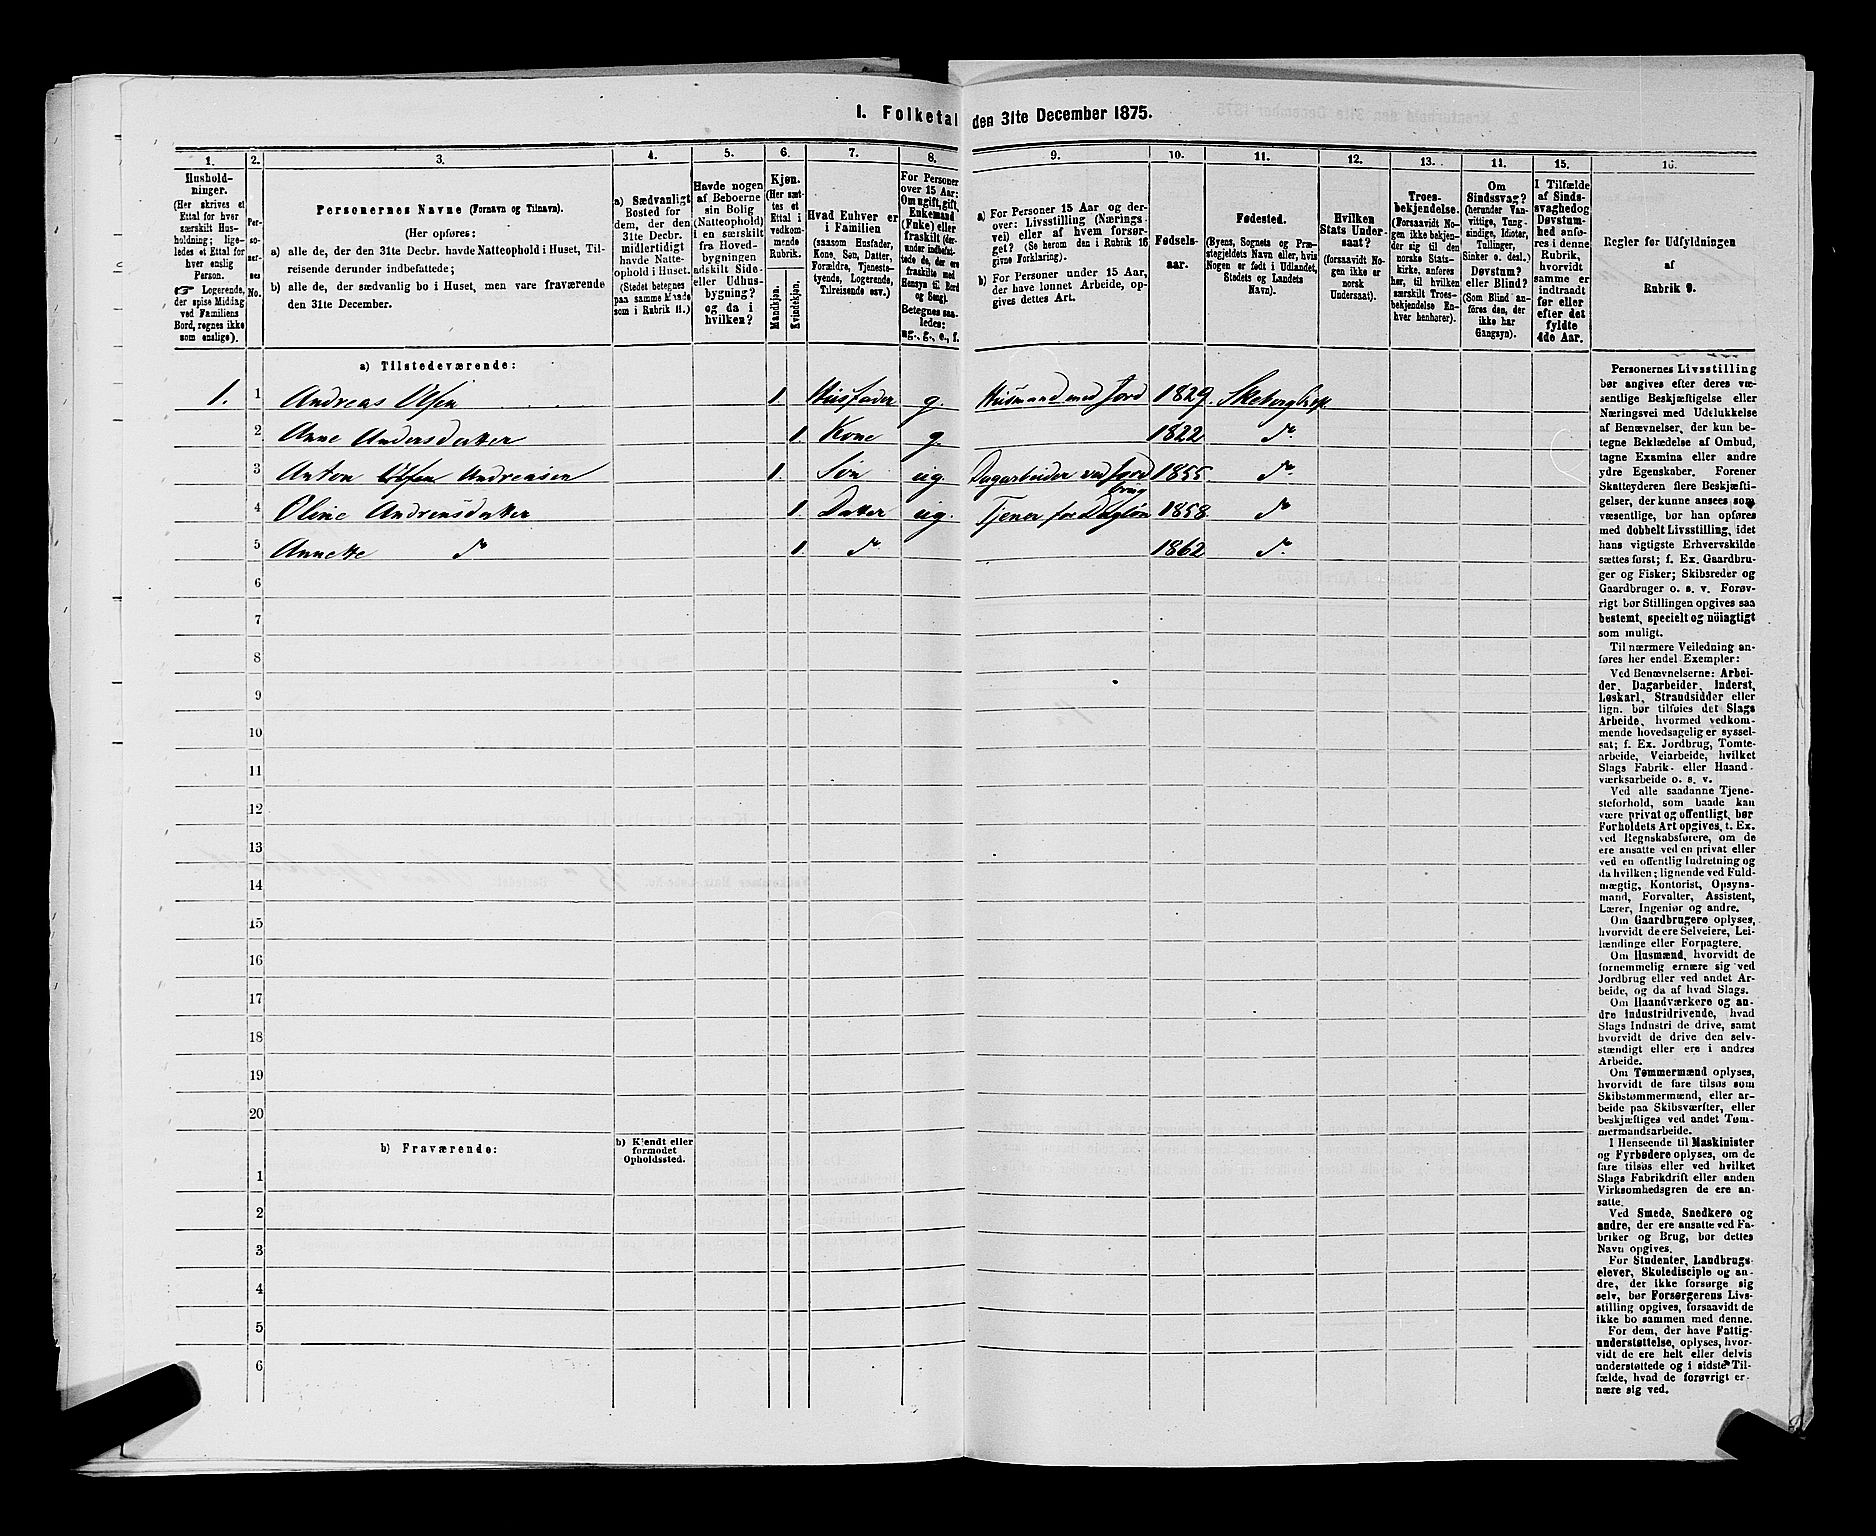 I. Folketal den 31te December 1875.
1. 2. 3. 4. 5. 6. 7. 8. 9. 10. 11. 12. 13. 14. 15. 16.
Husholdninger.
(Her skrives et
Ettal for hver
særskilt Husholdning; ligeledes
et Ettal for
hver enslig
Person.
☛ Logerende,
der spise Middag
ved Familiens
Bord, regnes ikke
som enslige).
Personernes
No.
Personernes Navne (Fornavn og Tilnavn).
(Her opføres:
a) alle de, der den 31te Decbr. havde Natteophold i Huset, Tilreisende
derunder indbefattede;
b) alle de, der sædvanlig bo i Huset, men vare fraværende
den 31te December.
a) Sædvanligt
Bosted for
dem, der den
31te Decbr.
midlertidigt
havde Natteophold
i Huset.
(Stedet betegnes
paa samme Maade
som i Rubrik 11.)
Havde nogen
af Beboerne
sin Bolig
(Natteophold)
i en særskilt
fra Hovedbygningen
adskilt Side-
eller Udhusbygning?
og da i
hvilken?
Kjøn.
(Her sættes
et
Ettal i
vedkommende
Rubrik.
Mandkjøn.
Kvindekjøn.
Hvad Enhver er
i Familien
(saasom Husfader,
Kone, Søn, Datter,
Forældre, Tjenestetyende,
Logerende,
Tilreisende osv.)
For Personer
over 15 Aar:
Om ugift, gift,
Enkemand
(Enke) eller
fraskilt (derunder
indbefattede
de, der ere
fraskilte med
Hensyn til Bord
og Seng).
Betegnes saaledes:
ug., g., e., f.
a) For Personer 15 Aar og derover:
Livsstilling (Næringsvei)
eller af hvem forsørget?
(Se herom den i Rubrik 16
givne Forklaring).
b) For Personer under 15 Aar,
der have lønnet Arbeide, opgives
dettes Art.
Fødselsaar.
Fødested.
(Byens, Sognets og Præstegjeldets
Navn eller, hvis
Nogen er født i Udlandet,
Stedets og Landets
Navn).
Hvilken
Stats Undersaat?
(forsaavidt Nogen
ikke er
norsk
Undersaat).
Troesbekjendelse.
(Forsaavidt Nogen
ikke bekjender
sig til den
norske Statskirke,
anføres
her, til hvilken
særskilt Troesbekjendelse
Enhver
henhører).
Om
Sindssvag?
(herunder Vanvittige,
Tungsindige,
Idioter,
Tullinger,
Sinker o. desl.)
Døvstum?
eller Blind?
(Som Blind anføres
den, der
ikke har
Gangsyn).
I Tilfælde
af Sindssvaghed
og
Døvstumhed
anføres
i denne
Rubrik,
hvorvidt
samme er
indtraadt
før eller
efter det
fyldte
4de Aar.
Regler for Udfyldningen
af
Rubrik 9.
a) Tilstedeværende:
1. 1 Andreas Olsen 1. Husfader g. Husmand med Jord 1829. Skeberg
2 Anne Andersdatter 1. Kone g. 1822 do.
3 Anton Olsen Andreasen 1. Søn ug. Dagarbeider ved Jord
brug 1855. do.
4 Oline Andreasdatter 1. Datter ug. Tjener for Dagløn 1858. do
5 Annette do 1. do. 1862 do.
6
7
8
9
10
11
12
13
14
15
16
17
18
19
20
b) Fraværende:
b) Kjendt eller
formodet
Opholdssted.
1
2
3
4
5
6
Personernes Livsstilling
bør angives efter deres væsentlige
Beskjæftigelse eller
Næringsvei med Udelukkelse
af Benævnelser, der kun betegne
Beklædelse af Ombud,
tagne Examina eller andre
ydre Egenskaber. Forener
Skatteyderen flere Beskjæftigelser,
der kunne ansees som
væsentlige, bør han opføres
med dobbelt Livsstilling, idet
hans vigtigste Erhvervskilde
sættes først; f. Ex. Gaardbruger
og Fisker; Skibsreder og
Gaardbruger o. s. v. Forøvrigt
bør Stillingen opgives saa
bestemt, specielt og nøiagtigt
som muligt.
Til nærmere Veiledning anføres
her endel Exempler:
Ved Benævnelserne: Arbeider,
Dagarbeider, Inderst,
Løskarl, Strandsidder eller
lign. bør tilføies det Slags
Arbeide, hvormed vedkommende
hovedsagelig er sysselsat;
f. Ex. Jordbrug, Tomtearbeide,
Veiarbeide, hvilket
Slags Fabrik- eller Haandværksarbeide
o. s. v.
Ved alle saadanne Tjenesteforhold,
som baade kan
være privat og offentligt, bør
Forholdets Art opgives, t. Ex.
ved Regnskabsførere, om de
ere ansatte ved en privat eller
ved en offentlig Indretning og
da hvilken; lignende ved Fuldmægtig,
Kontorist, Opsynsmand,
Forvalter, Assistent,
Lærer, Ingeniør og andre.
Om Gaardbrugere oplyses,
hvorvidt de ere Selveiere, Leilændinge
eller Forpagtere.
Om Husmænd, hvorvidt de
fornemmelig ernære sig ved
Jordbrug eller ved andet Arbeide,
og da af hvad Slags.
Om Haandværkere og andre
industridrivende, hvad
Slags Industri de drive, samt
hvorvidt de drive den selvstændigt
eller ere i andres
Arbeide.
Om Tømmermænd oplyses,
hvorvidt de fare tilsøs som
Skibstømmermænd, eller arbeide
paa Skibsværfter, eller
beskjæftiges ved andet Tømmermandsarbeide.
I Henseende til Maskinister
og Fyrbødere oplyses, om de
fare tilsøs eller ved hvilket
Slags Fabrikdrift eller anden
Virksomhedsgren de ere ansatte.
Ved Smede, Snedkere og
andre, der ere ansatte ved Fabriker
og Brug, bør dettes
Navn opgives.
For Studenter, Landbrugselever,
Skoledisciple og andre,
der ikke forsørge sig
selv, bør Forsørgerens Livsstilling
opgives, forsaavidt de
ikke bo sammen med denne.
For dem, der have Fattigunderstøttelse,
oplyses, hvorvidt
de ere helt eller delvis
understøttede og i sidste Tilfælde,
hvad de forøvrigt ernære
sig ved.